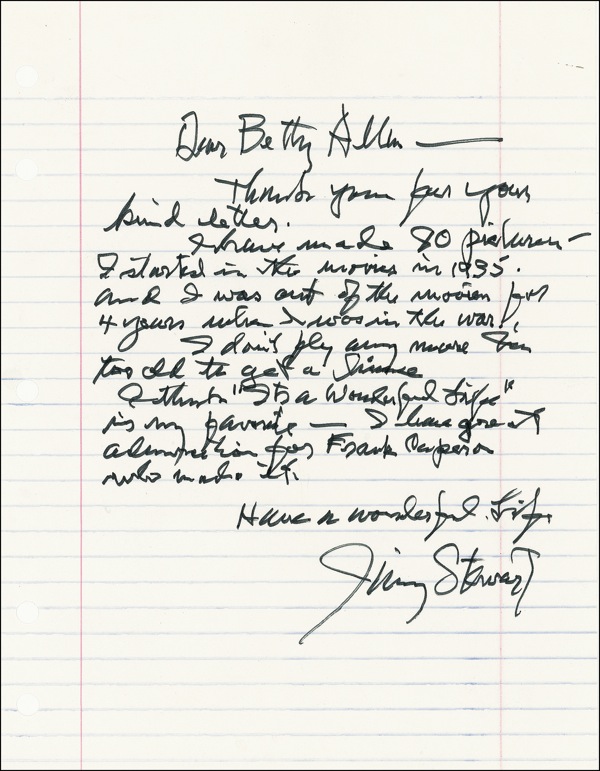 Dear Betty Allen —
Thank you for your
kind letter.
I have made 80 pictures –
I started in the movies in 1935.
and I was out of the movies for
4 years when I was in the war!
I don't fly any more I'm
too old to get a license
I think "It's a Wonderful Life"
is my favorite — I have great
admiration for Frank Capra
who made it.
Have a wonderful life
Jimmy Stewart